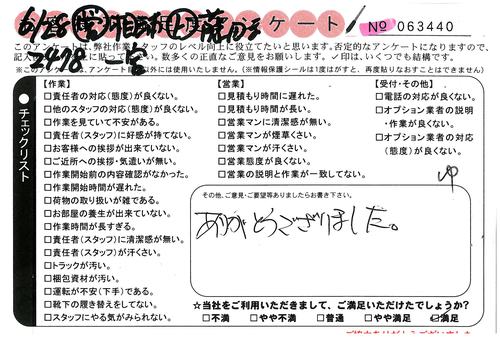 6/28
ケート
No 063440
このアンケートは、弊社作業スタッフのレベル向上に役立てたいと思います。否定的なアンケートになりますので、
数多くの正直なご意見をお願いします。✓印は、いくつでも結構です。
2478
※このアンケートは、
以外には使用いたしません。(※情報保護シールは1度はがすと、再度貼りなおすことはできません)
●チェックリスト
【作業】
□責任者の対応(態度)が良くない。
□他のスタッフの対応(態度)が良くない。
□作業を見ていて不安がある。
□責任者(スタッフ)に好感が持てない。
□お客様への挨拶が出来ていない。
□ご近所への挨拶・気遣いが無い。
□作業開始前の内容確認がなかった。
□作業開始時間が遅れた。
□荷物の取り扱いが雑である。
□お部屋の養生が出来ていない。
□作業時間が長すぎる。
□責任者(スタッフ)に清潔感が無い。
□責任者(スタッフ)が汗くさい。
□トラックが汚い。
□梱包資材が汚い。
□運転が不安(下手)である。
□靴下の履き替えをしてない。
□スタッフにやる気がみられない。
【営業】
□見積もり時間に遅れた。
□見積もり時間が長い。
□営業マンに清潔感が無い。
□営業マンが煙草くさい。
□営業マンが汗くさい。
□営業態度が良くない。
□営業の説明と作業が一致してない。
【受付・その他】
□電話の対応が良くない。
□オプション業者の説明
・作業が良くない。
□オプション業者の対応
(態度)が良くない。
その他、ご意見・ご要望等ありましたらお書き下さい。
ありがとうございました。
☆当社をご利用いただきまして、ご満足いただけたでしょうか?
□不満 □やや不満 □普通 □やや満足 ☑満足